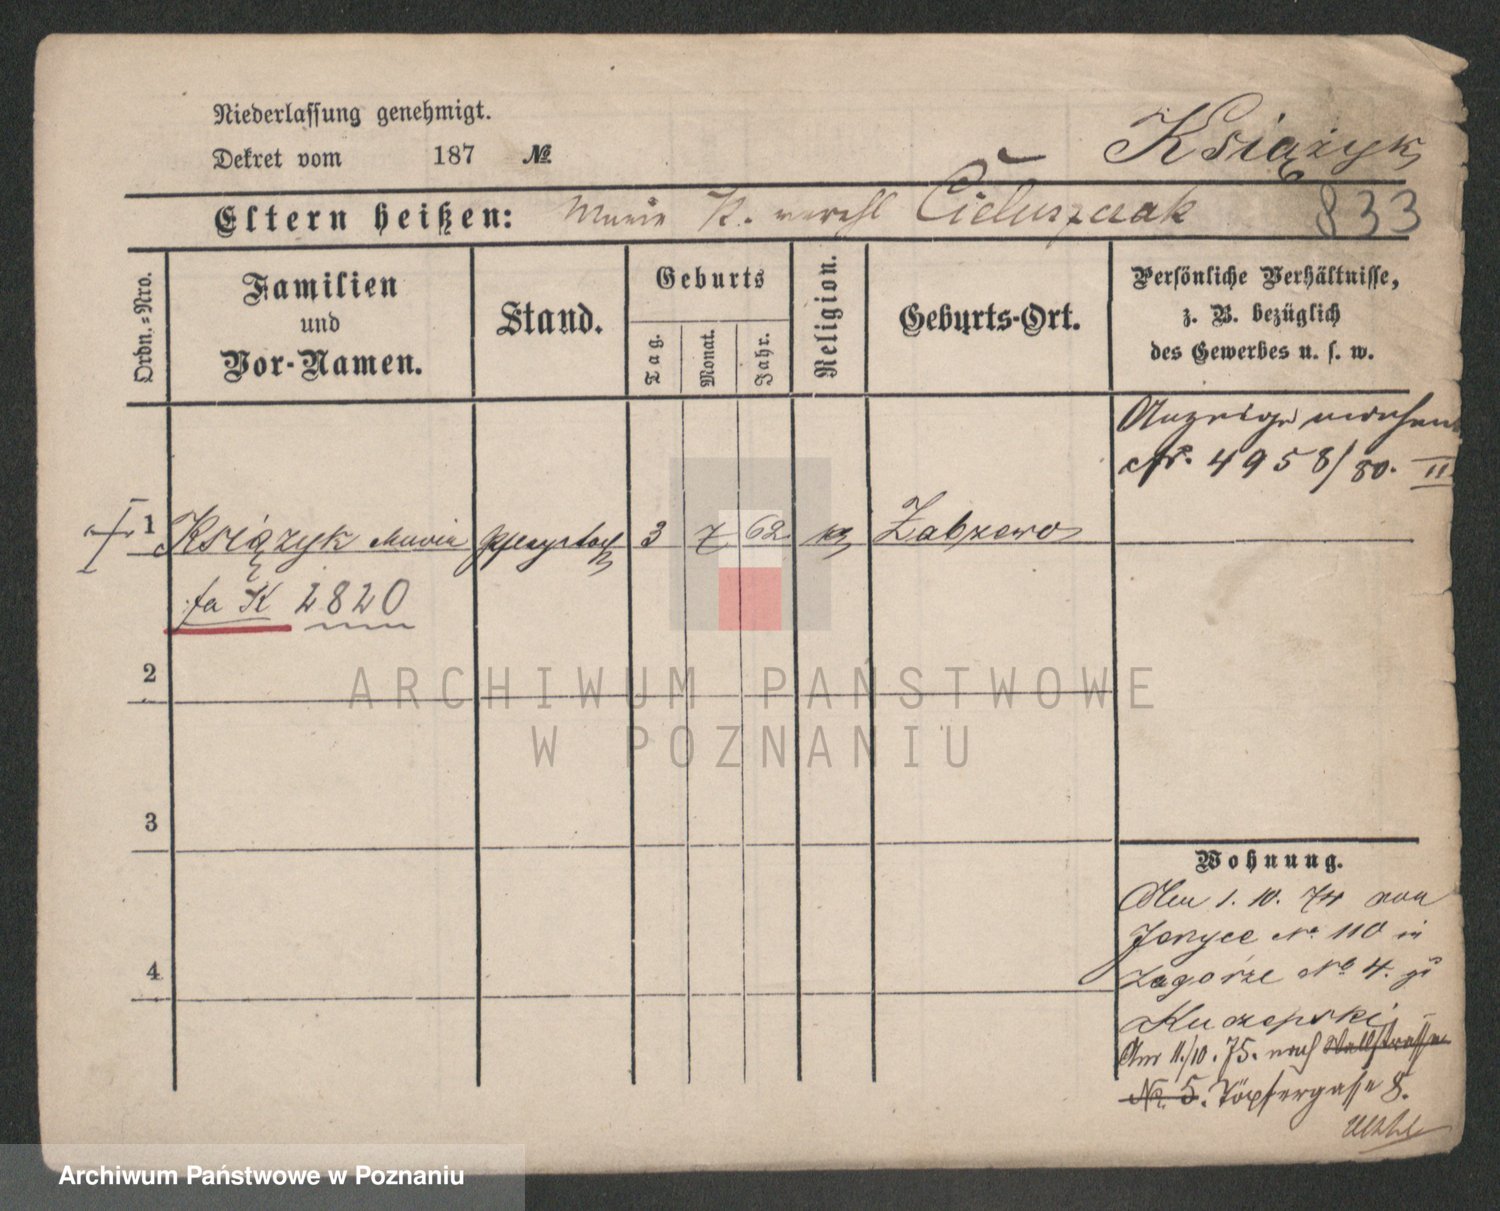 Niederlassung genehmigt.
Dekret vom 187 №
Książyk
Eltern heißen: Marie K. verehl Cieluszczak
833
Ordn.-Nro.
Familien
und
Vor-Namen.
Stand.
Geburts
Tag.
Monat.
Jahr.
Religion.
Geburts-Ort.
Persönliche Verhältnisse,
z. B. bezüglich
des Gewerbes u. s. w.
Nr. 4958/80. II
1 Książyk Maria Pflegetocht 3 7 62 Zabrzewo
fa K 2820
2
3
4
Wohnung.
Am 1. 10. 74 von
Jerzyce No 110 in
Zagórze No 4. zu
Kuczepski
Am 11/10. 75. nach Wallstrasse
Nr. 5. Töpfergasse 8.
ARCHIWUM PAŃSTWOWE
W POZNANIU
Archiwum Państwowe w Poznaniu